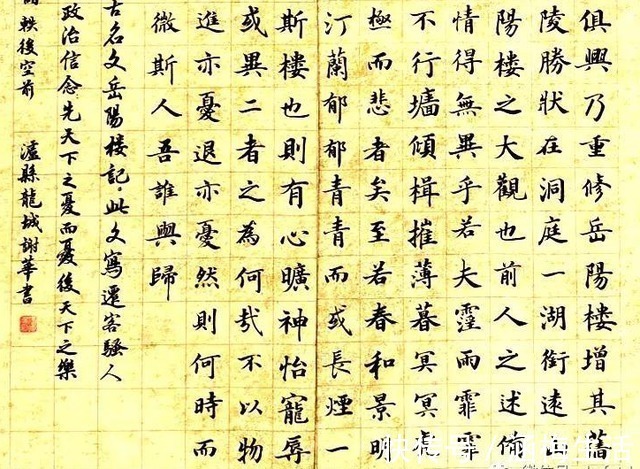 俱興乃重修岳陽樓增其舊
陵勝狀在洞庭一湖銜遠山
陽樓之大觀也前人之述備
情得無異乎若夫霪雨霏霏
不行墻傾楫摧薄暮冥冥
極而悲者矣至若春和景明
汀蘭郁郁青青而或長煙一
斯樓也則有心曠神怡寵辱
或異二者之為何哉不以物
進亦憂退亦憂然則何時而
微斯人吾誰與歸
古名文岳陽樓記。此文寫遷客騷人
政治信念先天下之憂而憂後天下之樂
軼後空前 瀘縣龍城謝華書